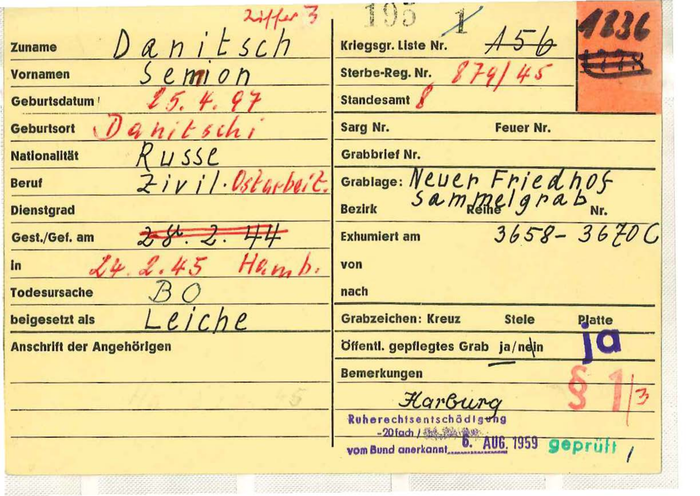 Ziffer 3
195 1
1836
Zuname Danitsch
Vornamen Semion
Geburtsdatum 25.4.97
Geburtsort Danitschi
Nationalität Russe
Beruf Zivil. Ostarbeit.
Dienstgrad
Gest./Gef. am 28. 2. 44
in 24.2.45 Hamb.
Todesursache BO
beigesetzt als Leiche
Anschrift der Angehörigen
Kriegsgr. Liste Nr. 156
Sterbe-Reg. Nr. 879/45
Standesamt 8
Sarg Nr. Feuer Nr.
Grabbrief Nr.
Grablage: Neuer Friedhof
Sammelgrab
Bezirk Reihe Nr.
3658-3670 C
Exhumiert am
von
nach
Grabzeichen: Kreuz Stele Platte
Öffentl. gepflegtes Grab ja/nein ja
Bemerkungen § 1/3
Harburg
Ruherechtsentschädigung
-20fach /
vom Bund anerkannt 6. AUG. 1959 geprüft